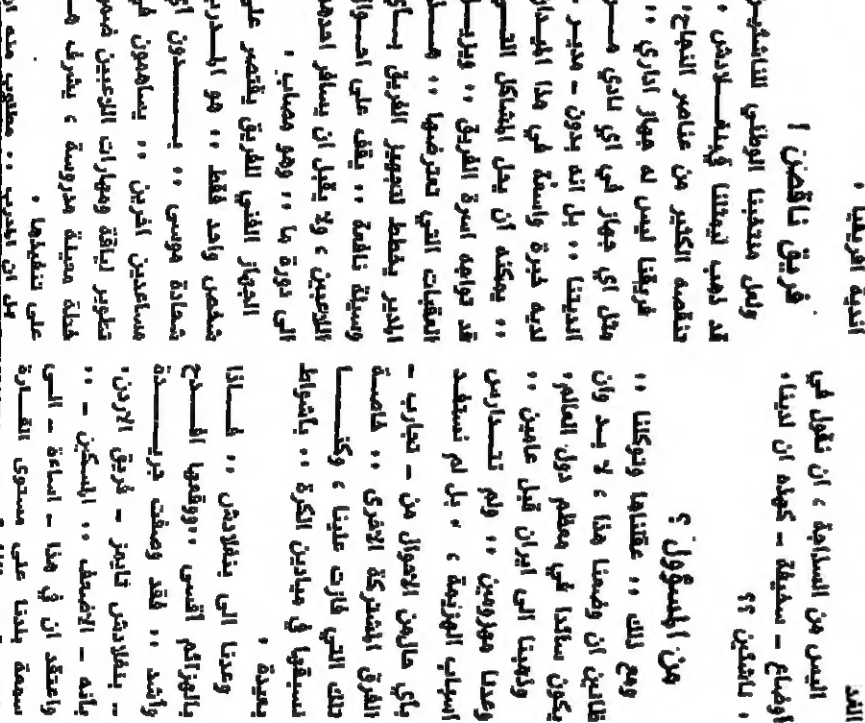 الغد
اليس من السذاجة ، ان نقول في
اوضاع - سخيفة - كهذه ان لدينا،
، ناشئين ؟؟
من المسؤول ؟
ومع ذلك .. عقلناها وتوكلنا ..
ظانين ان وضعنا هذا ، لا بد وان
يكون سائدا في معظم دول العالم،
وذهبنا الى ايران قبل عامين ..
وعدنا مهزومين .. ولم نتدارس
اسباب الهزيمة ، ، بل لم نستفد
بأي حال من الاحوال من - تجارب -
الفرق المشتركة الاخرى .. خاصة
تلك التي فازت علينا ، وكنا
نسبقها في ميادين الكرة .. باشواط
بعيدة .
وعدنا الى بنغلادش .. فاذا
بالهزائم اقسى ..ووقعها افدح
واشد .. فقد وصفت جريدة
- بنغلادش تايمز - فريق الاردن،
بانه - الاضعف .. المسكين - ..
واعتقد ان في هذا - اساءة - الى
سمعة بلدنا على مستوى القارة
اندية افريقيا .
فريق ناقص !
ولعل منتخبنا الوطني للناشئين
قد ذهب ليمثلنا في بنغلادش .
تنقصه الكثير من عناصر النجاح،
فريقنا ليس له جهاز اداري ..
مثل اي جهاز في اي نادي من
انديتنا .. بل انه بدون - مدير -
لديه خبرة واسعة في هذا الميدان
.. يمكنه ان يحل المشاكل التي
قد تواجه اسرة الفريق .. ويزيل
العقبات التي تعترضها .. هذا
المدير يخطط لتجهيز الفريق بأي
وسيلة نافعة .. يقف على احوال
اللاعبين ، ولا يقبل ان يسافر احدهم
الى دورة ما .. وهو مصاب .
الجهاز الفني للفريق يقتصر على
شخص واحد فقط .. هو المدرب
شحادة موسى .. بدون اي
مساعدين اخرين .. يساهمون في
تطوير لياقة ومهارات اللاعبين ضمن
خطة معينة مدروسة ، يشرف هو
على تنفيذها .
بل ان المدرب .. مطلوب منه ان